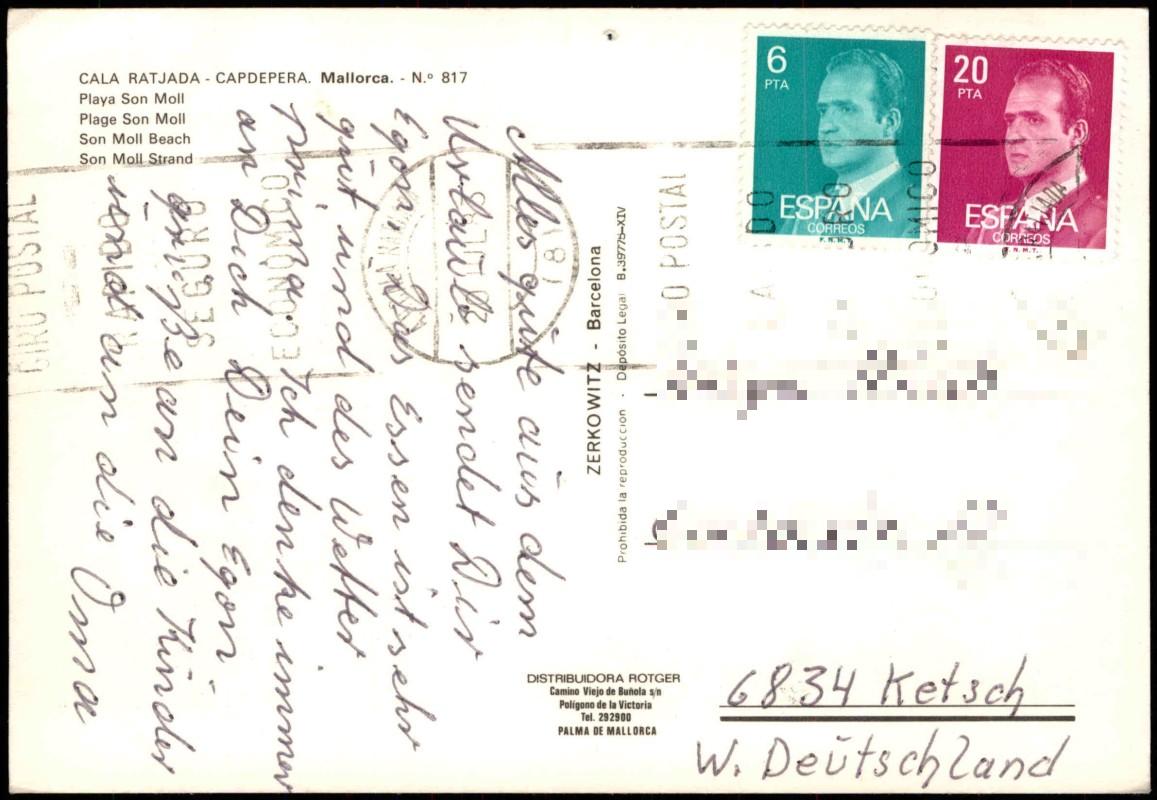 CALA RATJADA - CAPDEPERA. Mallorca. - N.º 817
Playa Son Moll
Plage Son Moll
Son Moll Beach
Son Moll Strand
Alles gute aus dem
Urlaub sendet Dir
Egon, Das Essen ist sehr
gut und des Wetter
Ich denke immer
an Dich Dein Egon
grüße an die Kinder
und an die Oma
ZERKOWITZ - Barcelona
Prohibida la reproducción - Depósito Legal B.39775-XIV
DISTRIBUIDORA ROTGER
Camino Viejo de Buñola s/n
Polígono de la Victoria
Tel. 292900
PALMA DE MALLORCA
6 PTA
ESPAÑA
CORREOS
F.N.M.T.
20 PTA
ESPAÑA
CORREOS
F.N.M.T.
GIRO POSTAL
SEGURO
ECONOMICO
O POSTAL
6834 Ketsch
W. Deutschland